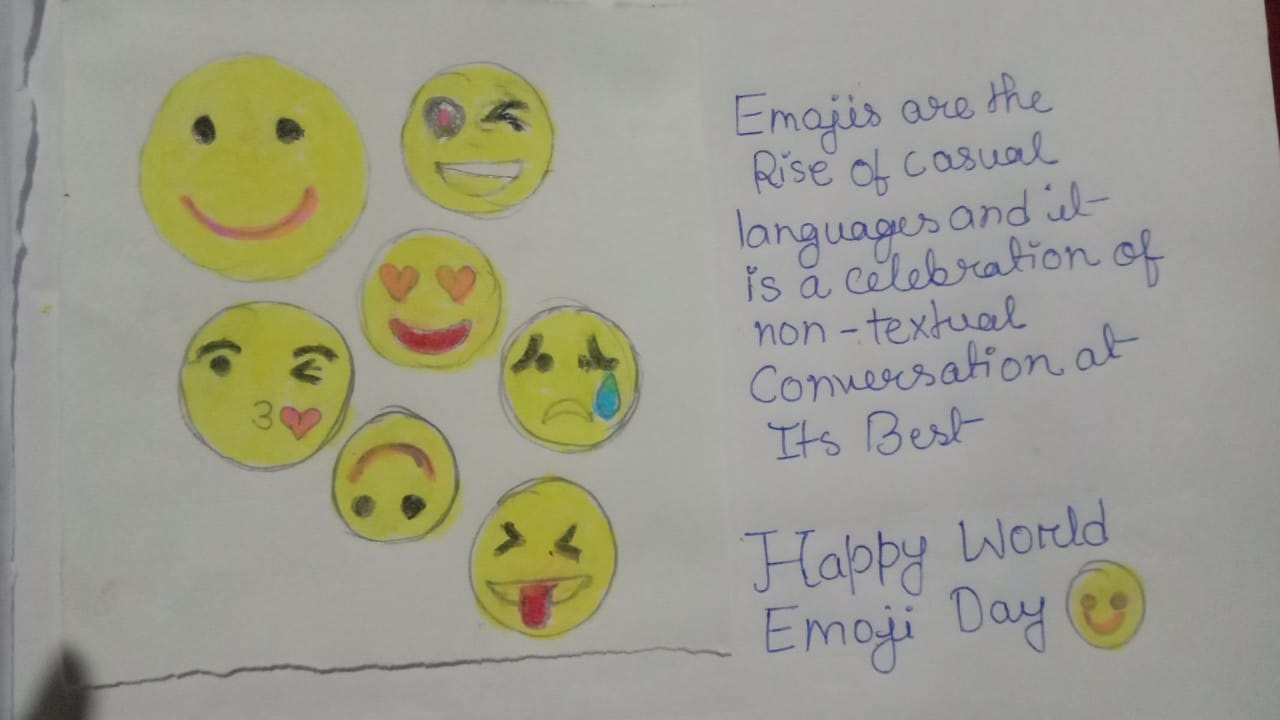 Emojis are the
Rise of casual
languages and it
is a celebration of
non-textual
Conversation at
Its Best
Happy World
Emoji Day